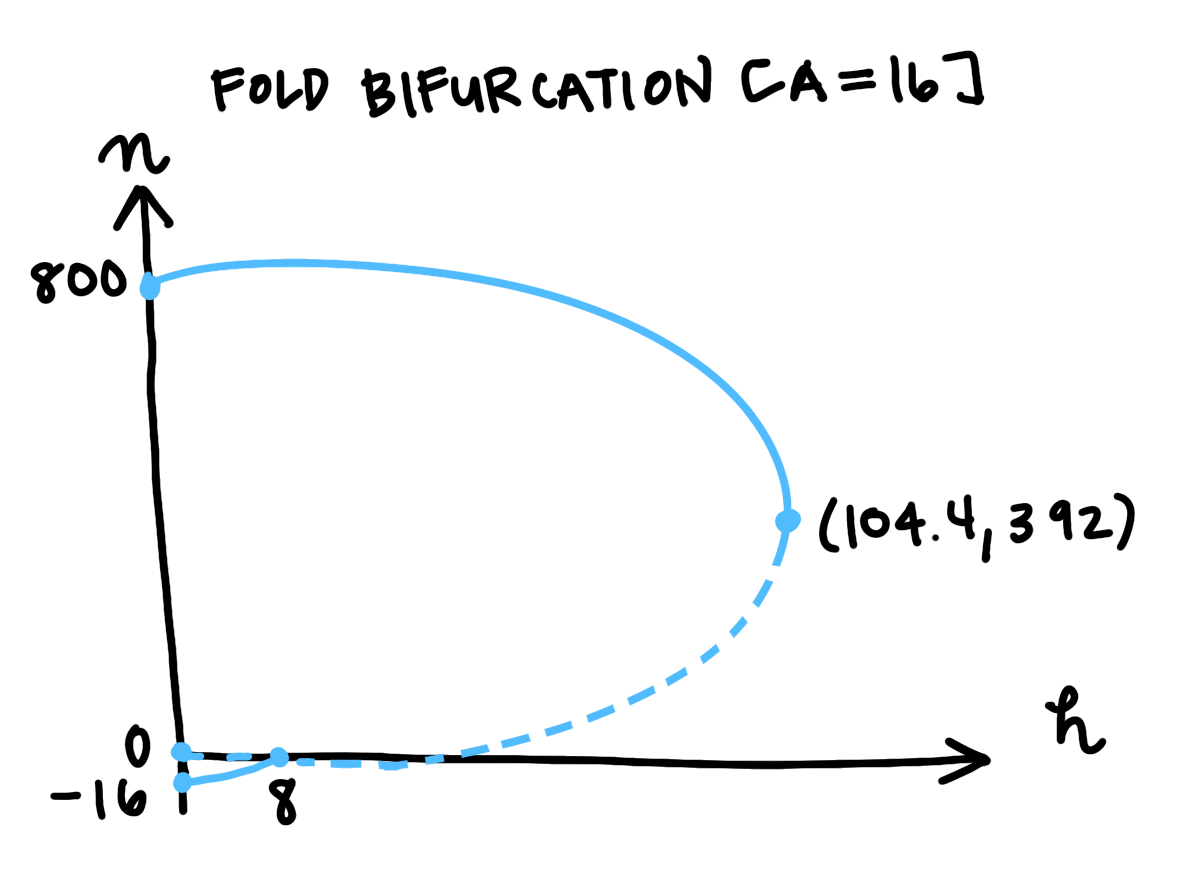 FOLD BIFURCATION [A=16]
n
800
(104.4, 392)
h
0
-16
8